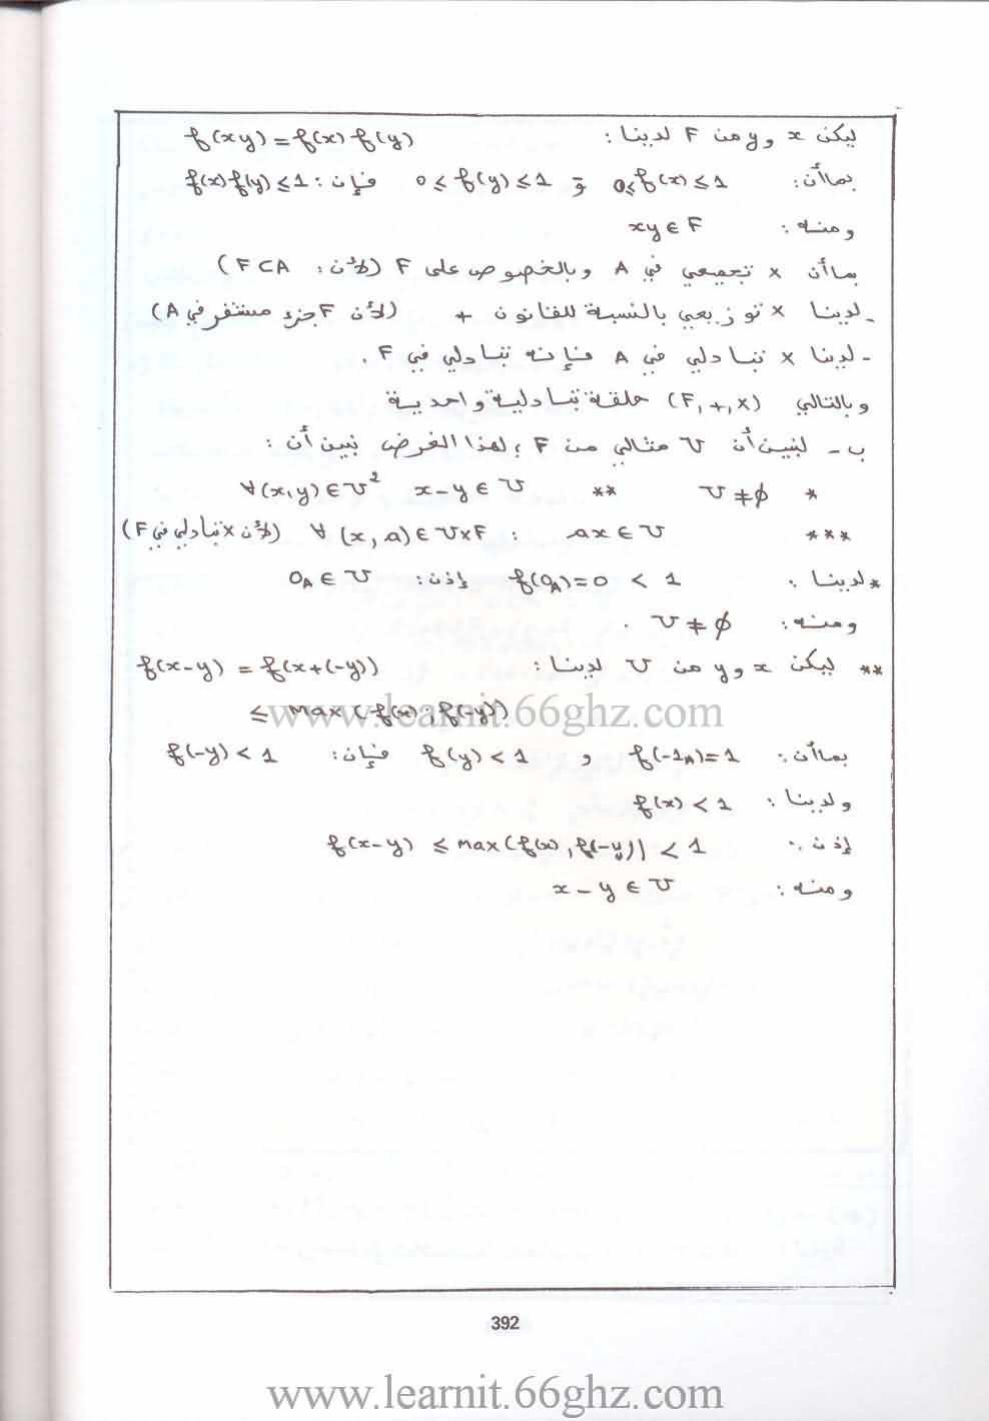 ليكن x و y من F لدينا : f(xy) = f(x) f(y)
بما أن : 0 ≤ f(x) ≤ 1 و 0 ≤ f(y) ≤ 1 فإن : f(x) f(y) ≤ 1
ومنه : xy ∈ F
بما أن × تجميعي في A وبالخصوص على F (لأن : F ⊂ A)
- لدينا × توزيعي بالنسبة للقانون + (لأن F جزء مستقر في A)
- لدينا × تبادلي في A فإنه تبادلي في F .
وبالتالي (F, +, ×) حلقة تبادلية واحدية
ب - لنبين أن V مثالي من F ؛ لهذا الغرض نبين أن :
* V ≠ ∅ ** ∀(x,y) ∈ V² x - y ∈ V
*** ∀ (x, a) ∈ V×F : ax ∈ V (لأن × تبادلي في F)
* لدينا : f(0_A) = 0 < 1 إذن : 0_A ∈ V
ومنه : V ≠ ∅ .
** ليكن x و y من V لدينا : f(x-y) = f(x+(-y))
≤ max (f(x) ; f(-y))
بما أن : f(-1_A) = 1 و f(y) < 1 فإن : f(-y) < 1
ولدينا : f(x) < 1
إذن : f(x-y) ≤ max (f(x), f(-y)) < 1
ومنه : x - y ∈ V
392
www.learnit.66ghz.com
www.learnit.66ghz.com